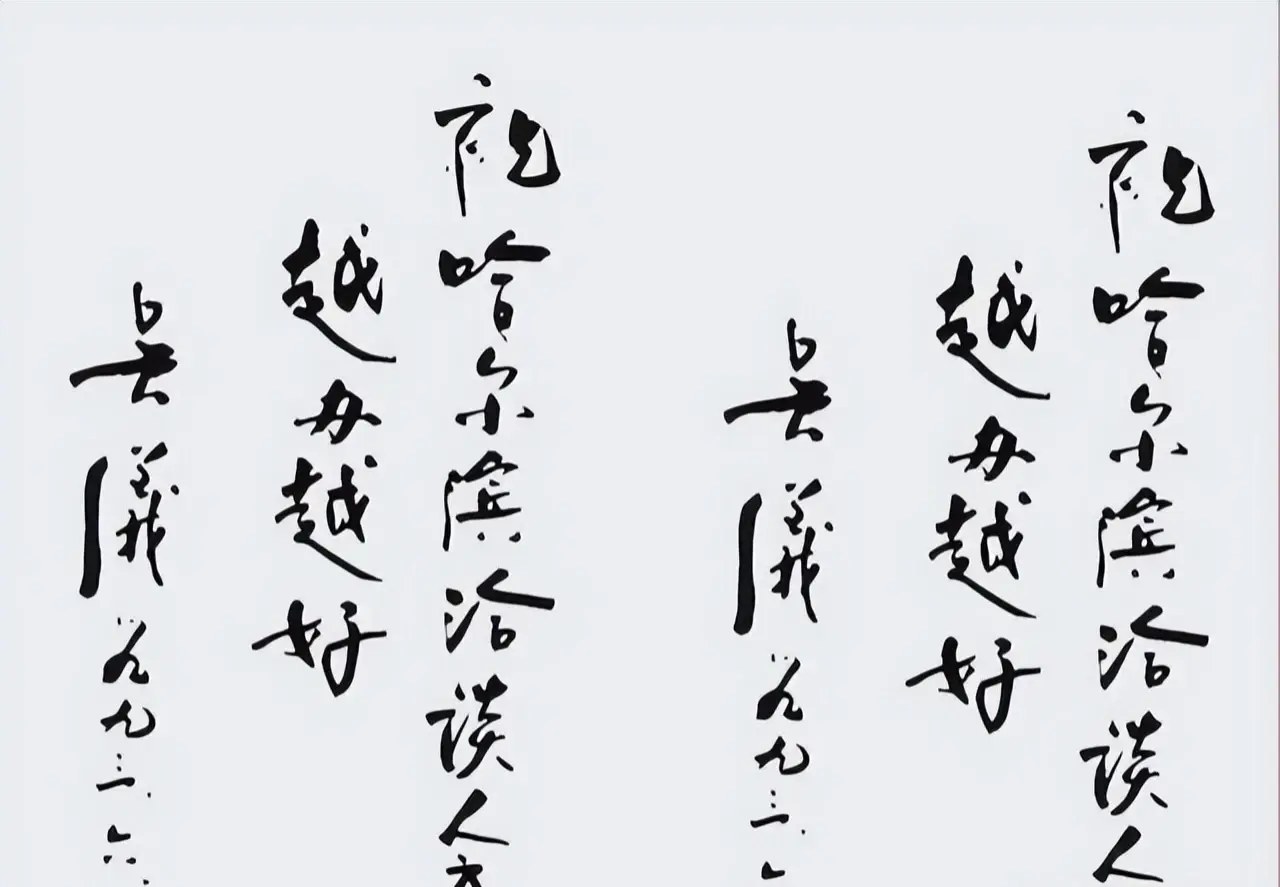 祝哈尔滨洽谈会
越办越好
吴儀
一九九三.
祝哈尔滨洽谈会
越办越好
吴儀
一九九三.六.